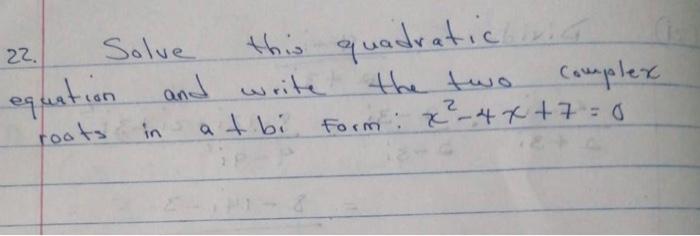 22. Solve this quadratic
equation and write the two complex
roots in a + bi Form: x² - 4x + 7 = 0